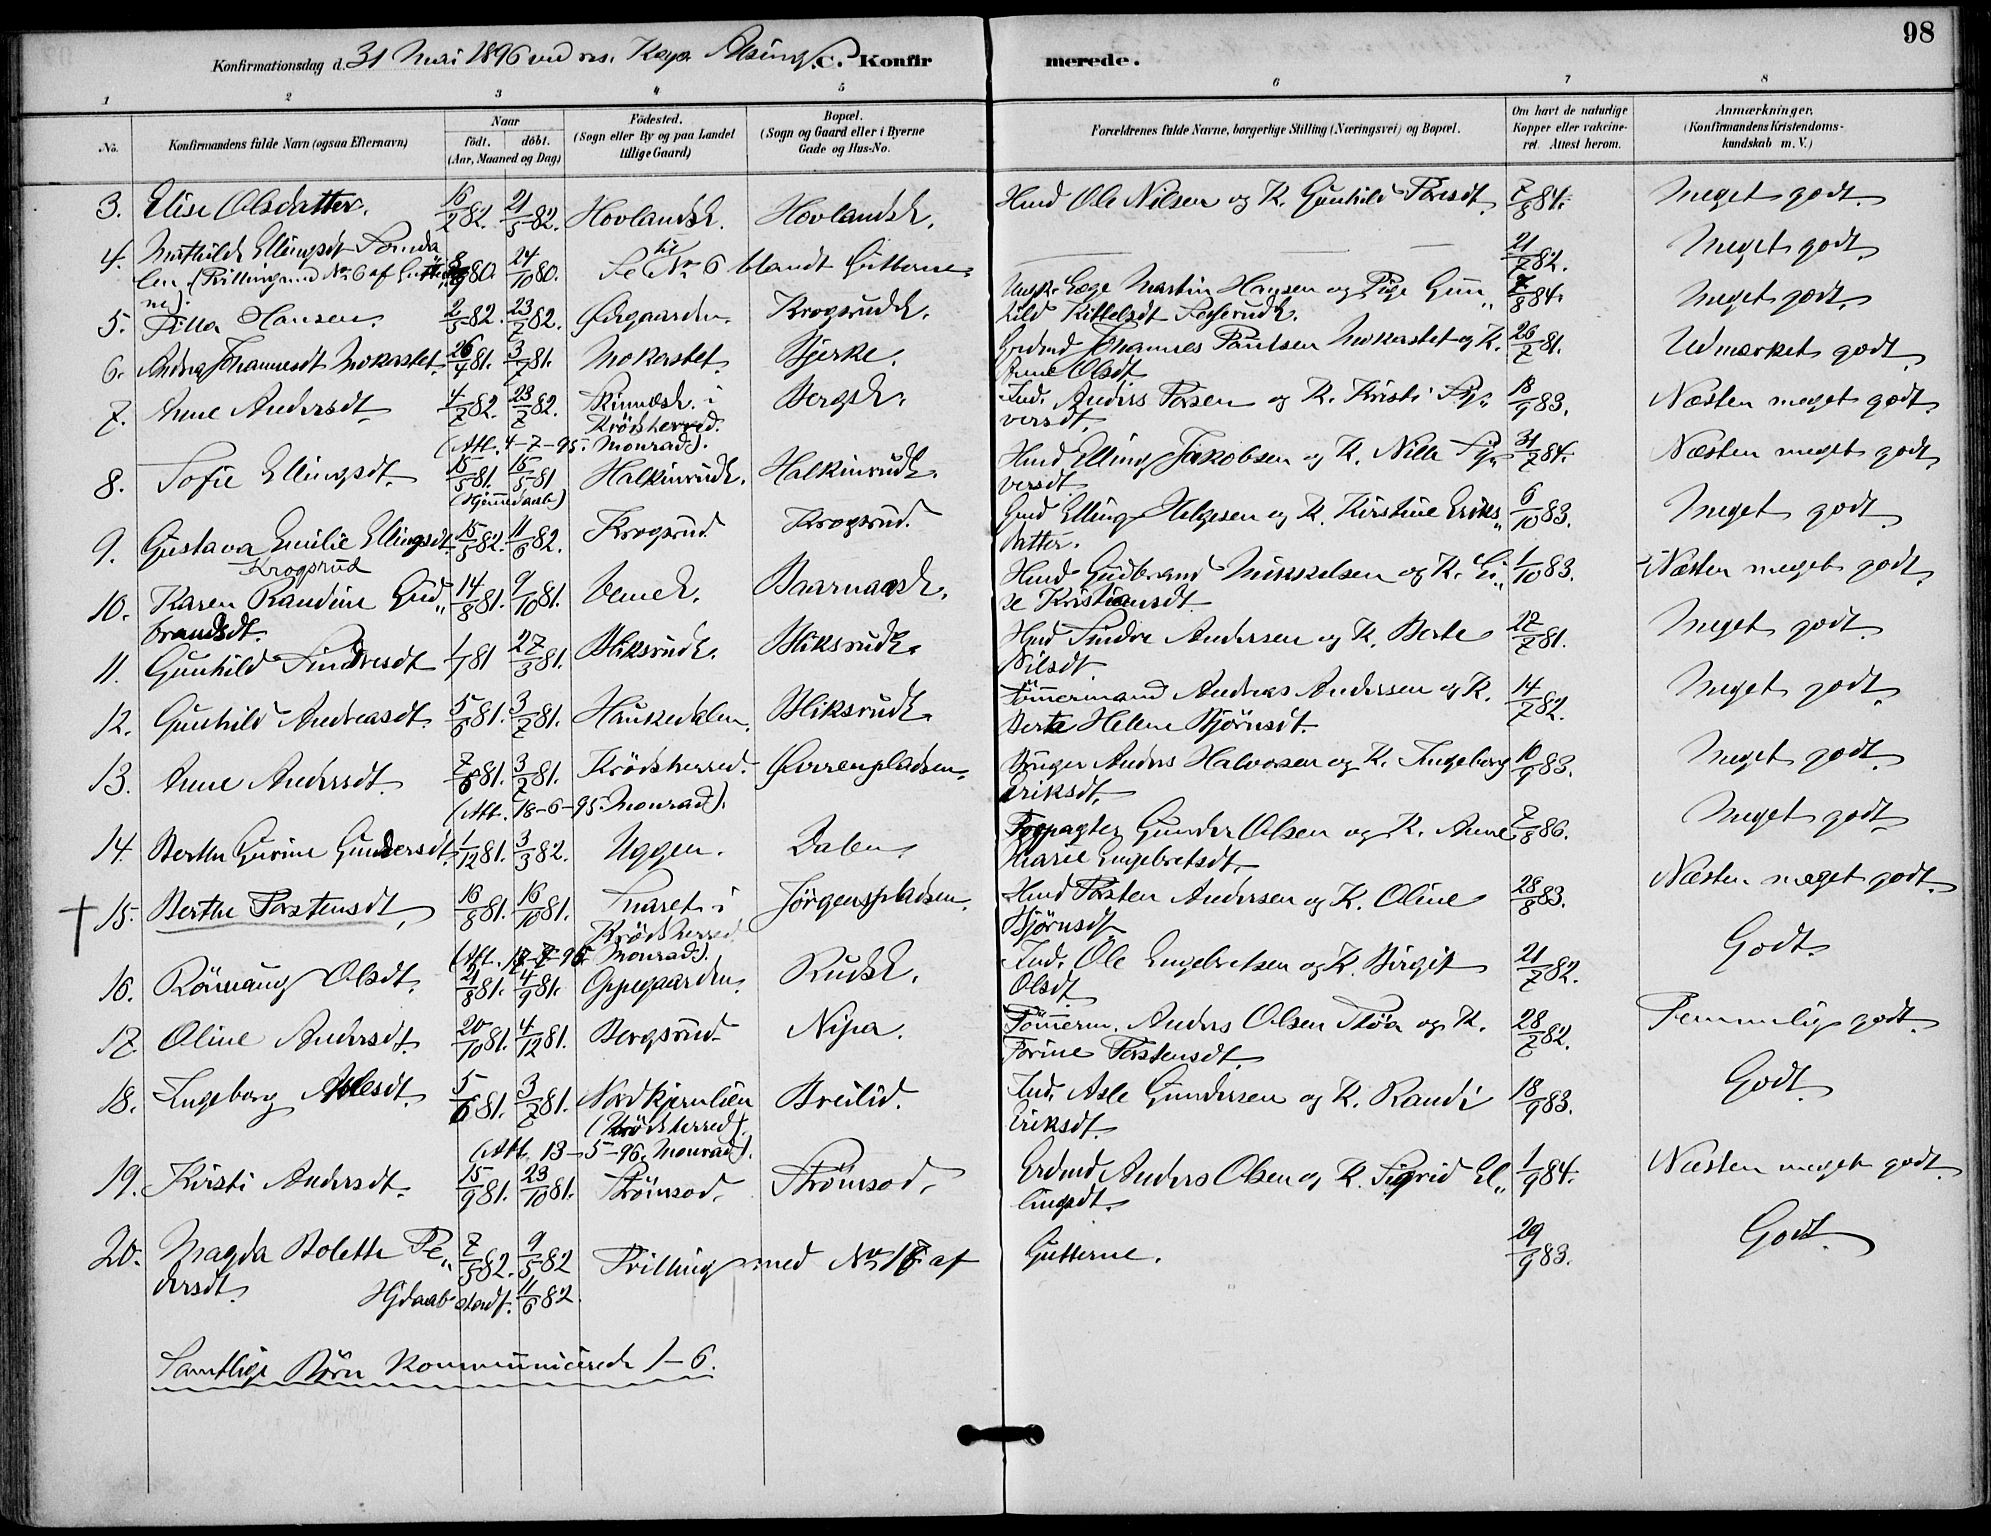 98
Konfirmationsdag d. 31 Mai 1896 ved res. Kap. Alsing. C. Konfirmerede.
1 2 3 4 5 6 7 8
No. Konfirmandens fulde Navn (ogsaa Efternavn) Naar födt. döbt. (Aar, Maaned og Dag) Födested. (Sogn eller By og paa Landet tillige Gaard) Bopæl. (Sogn og Gaard eller i Byerne Gade og Hus-No. Forældrenes fulde Navne, borgerlige Stilling (Næringsvei) og Bopæl. Om havt de naturlige Kopper eller vakcineret. Attest herom. Anmærkninger, (Konfirmandens Kristendomskundskab m. V.)
3. Elise Olsdatter. 16/2 82. 21/5 82. Hovlandsk. Hovlandsk. Husmd Ole Nilsen og K. Gunhild Toresdt. 7/8 84. Meget godt.
4. Mathilde Ellingsdt Somda
len (Tvilling med No 6 af Gutter
ne). 8/9 80. 24/10 80. Se til No 6 blandt Gutterne. 21/7 82. Meget godt.
5. Pilla Hansen. 2/5 82. 23/7 82. Ødegaarden. Krogsrudk. Ungk. Ege Martin Hansen og Pige Gun„
hild Kittelsdt 7/8 84. Meget godt.
6. Andrea Johannesdt Mokastet. 26/4 81. 3/7 81. Mokastet. Bjerke. Grdmd Johannes Paulsen Mokastet og K.
Anne Olsdt 26/7 81. Udmærket godt.
7. Anne Andersdt. 4/7 82. 23/7 82. Skinnæsk. i
Krödsherred. Bergsk. Ind. Anders Torsen og K. Kristi Sy„
versdt. 18/9 83. Næsten meget godt.
(Att. 4-7-95. Monrad).
8. Sofie Ellingsdt. 15/5 81. 15/5 81 Halkinrudk. Halkinrudk. Husmd Elling Jakobsen og K. Nilla Sy„
versdt 31/7 84. Næsten meget godt.
(Hjemmedaab)
9. Gustava Emilie Ellingsdt
Krogsrud 15/5 82. 11/6 82. Krogsrud. Krogsrud. Grmd Elling Helgesen og K. Kirstine Eriks„
datter. 6/10 83. Meget godt.
10. Karen Randine Gud„
brandsdt. 14/8 81. 9/10 81. Vemek. Baarnaask. Husmd Gudbrand Mikkelsen og K. Li„
se Kristiansdt. 1/10 83. Næsten meget godt.
11. Gunhild Sindresdt 1/1 81 27/3 81. Bliksrudk. Bliksrudk. Husmd Sindre Andersen og K. Berte
Nilsdt 27/7 81. Meget godt.
12. Gunhild Andreasdt. 5/6 81. 3/7 81. Haukedalen. Bliksrudk. Tömmermand Andreas Andersen og K.
Berte Helene Bjørnsdt. 14/7 82. Meget godt.
13. Anne Andersdt. 7/6 81. 3/7 81. Krödsherred. Ørrenpladsen. Bruger Anders Halvorsen og K. Ingeborg
Eriksdt. 10/9 83. Meget godt.
(Att. 18-6-95. Monrad).
14. Berthe Gurine Gundersdt. 1/12 81. 3/3 82. Uggen. Dalen. Gunder Olsen og K. Anne
Marie Engebretsdt. 7/8 86. Meget godt.
† 15. Berthe Torstensdt. 16/8 81. 16/10 81. Snaret i
Krödsherred. Jörgenspladsen. Husmd Torsten Andersen og K. Oline
Björnsdt. 28/8 83. Næsten meget godt.
16. Rönnaug Olsdt. 21/8 81. 4/9 81. Oppegaarden. Rudsk. Ind. Ole Engebretsen og K. Birgit
Olsdt 21/7 82. Godt.
17. Oline Andersdt. 20/10 81. 4/12 81. Bergsrud Nipa. Tömmerm. Anders Olsen Thøa og K.
Torine Torstensdt. 28/7 82. Temmelig godt.
18. Ingeborg Aslesdt. 5/6 81. 3/7 81. Nordkjernlien
(Krödsherred). Breilid. Ind. Asle Gundersen og K. Randi
Eriksdt. 18/9 83. Godt.
(Att. 13-5-96. Monrad).
19. Kirsti Andersdt. 15/9 81. 23/10 81. Strömsod. Strömsod. Grdmd Anders Olsen og K. Sigrid El„
lingsdt. 1/9 84. Næsten meget godt.
20. Magda Bolette Pe„
dersdt. 7/5 82. 9/5 82 Tvilling med No 17 af Gutterne. 29/9 83. Godt.
Hjdaab stadf. 11/6 82.
Samtlige Börn kommunicerede 1-6.